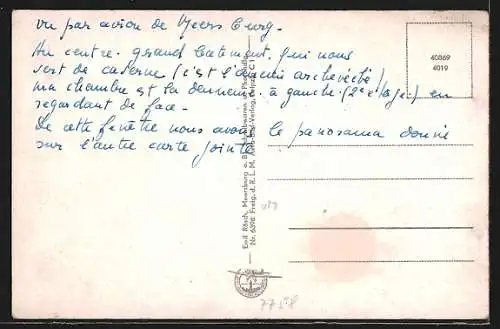 vu par avion de Meersburg.
Au centre. grand batiment. qui nous
sert de caserne (c'est l'ancien archevêché)
ma chambre est la derniere à gauche (2e étage) en
regardant de face.
De cette fenêtre nous avons le panorama donné
sur l'autre carte jointe
40869
4019
Emil Rösch, Meersburg a. B.
Nr. 6596 Freig. d. R. L. M.
7758